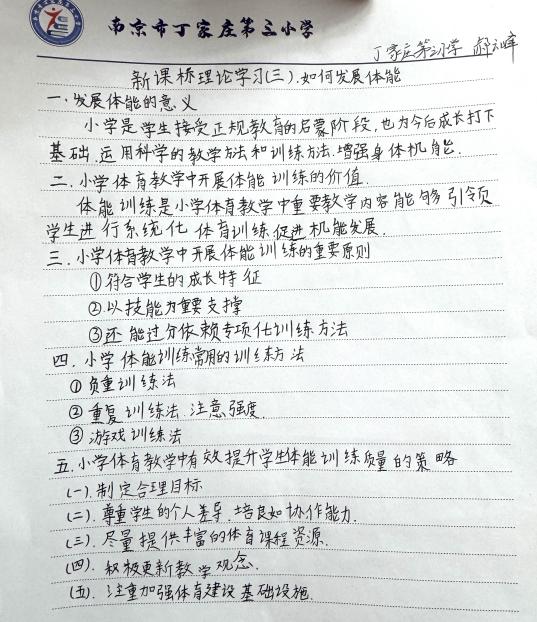 南京市丁家庄第三小学
丁家庄第三小学
新课标理论学习(三).如何发展体能
一.发展体能的意义
小学是学生接受正规教育的启蒙阶段,也为今后成长打下
基础.运用科学的教学方法和训练方法.增强身体机能.
二.小学体育教学中开展体能训练的价值.
体能训练是小学体育教学中重要教学内容能够引领
学生进行系统化体育训练促进机能发展.
三.小学体育教学中开展体能训练的重要原则
①符合学生的成长特征
②.以技能为重要支撑
③还能过分依赖专项化训练方法
四.小学体能训练常用的训练方法
①负重训练法
②重复训练法.注意强度.
③游戏训练法
五.小学体育教学中有效提升学生体能训练质量的策略
(一).制定合理目标
(二).尊重学生的个人差异.培良如协作能力.
(三).尽量提供丰富的体育课程资源.
(四).积极更新教学观念.
(五).注重加强体育建设基础设施.